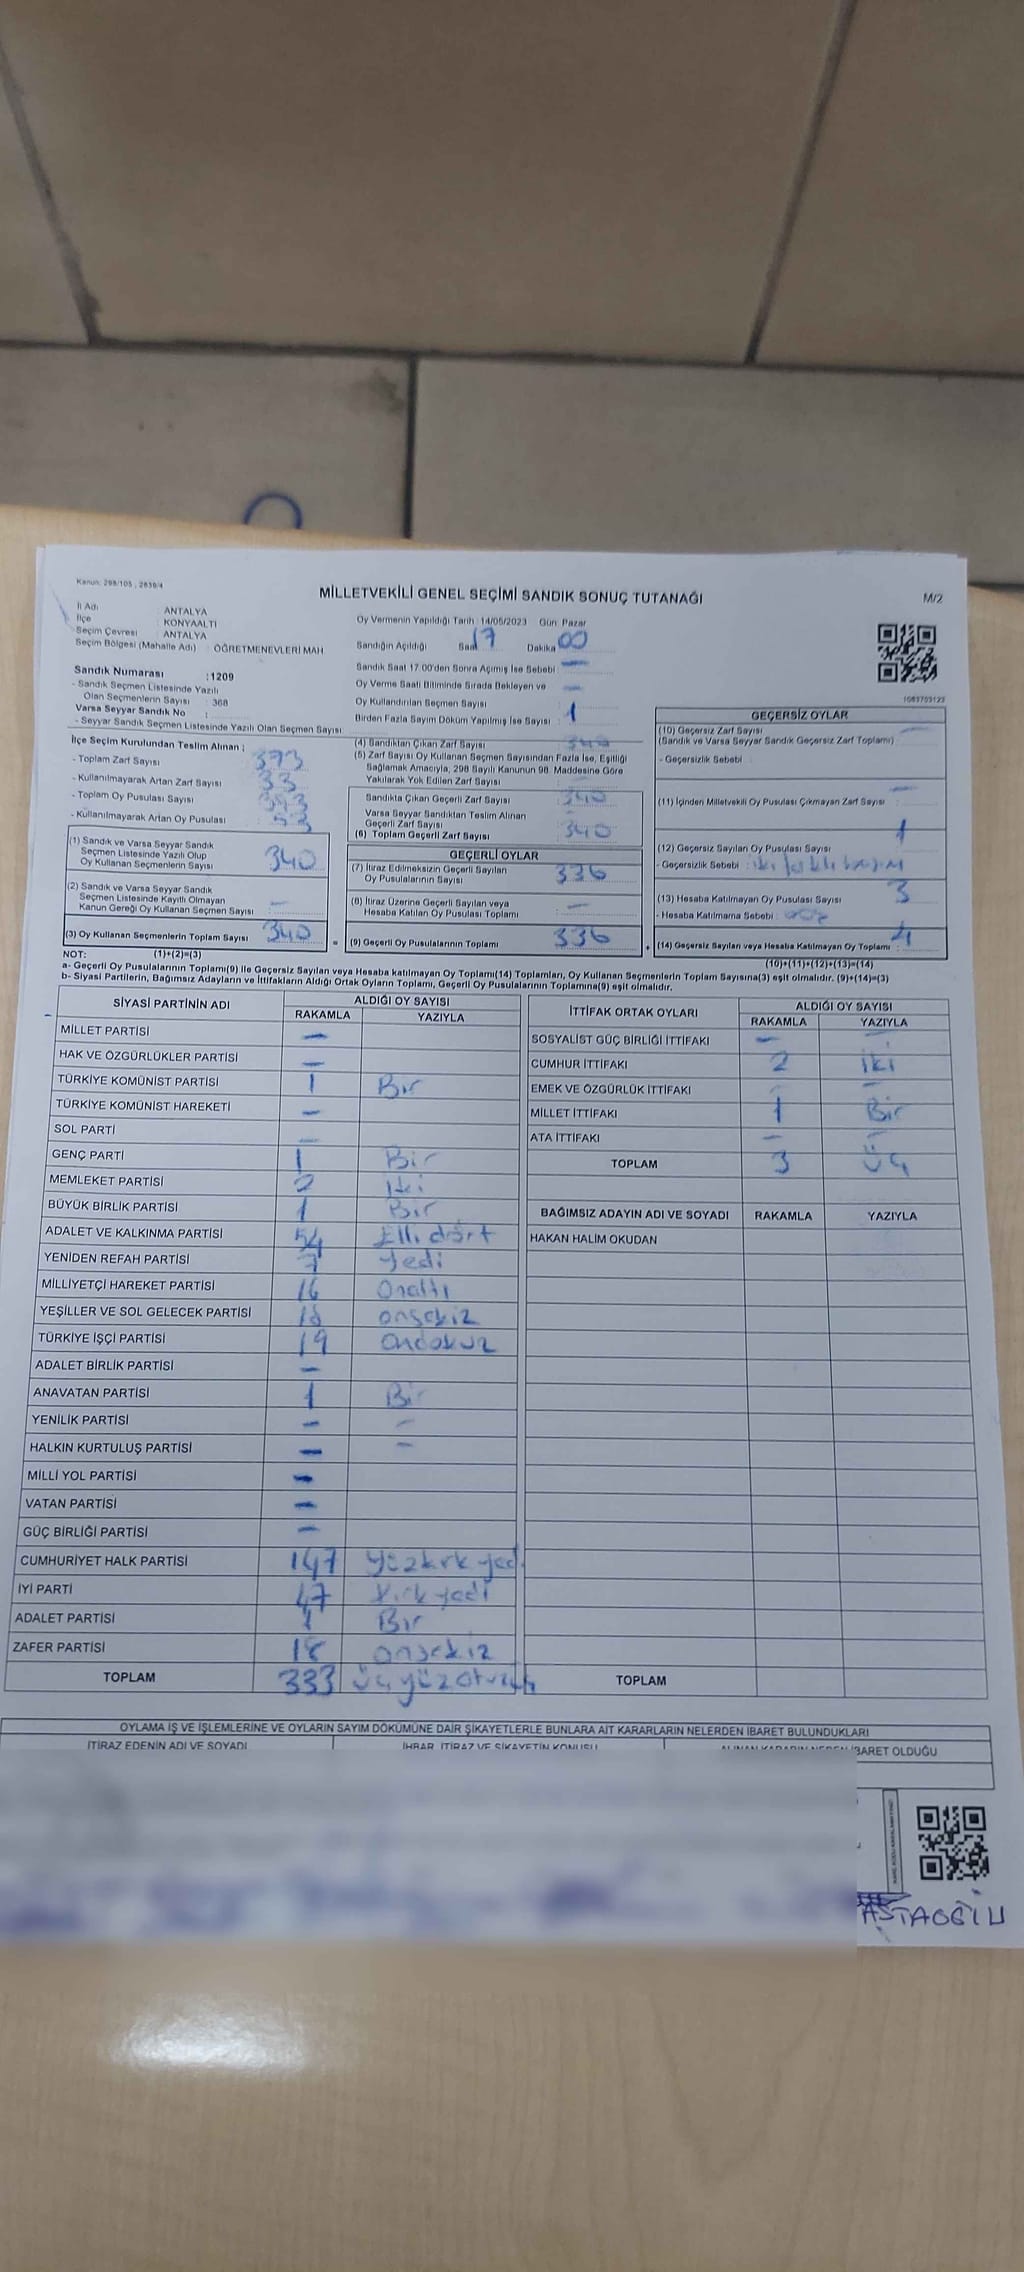 Kanun: 298/105 , 2839/4
MİLLETVEKİLİ GENEL SEÇİMİ SANDIK SONUÇ TUTANAĞI
M/2
İl Adı : ANTALYA
İlçe : KONYAALTI
Seçim Çevresi : ANTALYA
Seçim Bölgesi (Mahalle Adı) : ÖĞRETMENEVLERİ MAH
Sandık Numarası :1209
- Sandık Seçmen Listesinde Yazılı
Olan Seçmenlerin Sayısı : 368
Varsa Seyyar Sandık No :
- Seyyar Sandık Seçmen Listesinde Yazılı Olan Seçmen Sayısı
Oy Vermenin Yapıldığı Tarih : 14/05/2023 Gün: Pazar
Sandığın Açıldığı Saat 17 Dakika 00
Sandık Saat 17.00'den Sonra Açımış İse Sebebi : —
Oy Verme Saati Bitiminde Sırada Bekleyen ve
Oy Kullandırılan Seçmen Sayısı : —
Birden Fazla Sayım Döküm Yapılmış İse Sayısı : 1
1083703123
İlçe Seçim Kurulundan Teslim Alınan ;
- Toplam Zarf Sayısı : 373
- Kullanılmayarak Artan Zarf Sayısı : 33
- Toplam Oy Pusulası Sayısı :
- Kullanılmayarak Artan Oy Pusulası :
(1) Sandık ve Varsa Seyyar Sandık
Seçmen Listesinde Yazılı Olup
Oy Kullanan Seçmenlerin Sayısı : 340
(2) Sandık ve Varsa Seyyar Sandık
Seçmen Listesinde Kayıtlı Olmayan
Kanun Gereği Oy Kullanan Seçmen Sayısı : —
(3) Oy Kullanan Seçmenlerin Toplam Sayısı : 340
(4) Sandıktan Çıkan Zarf Sayısı : 340
(5) Zarf Sayısı Oy Kullanan Seçmen Sayısından Fazla İse, Eşitliği
Sağlamak Amacıyla, 298 Sayılı Kanunun 98. Maddesine Göre
Yakılarak Yok Edilen Zarf Sayısı :
Sandıkta Çıkan Geçerli Zarf Sayısı : 340
Varsa Seyyar Sandıktan Teslim Alınan
Geçerli Zarf Sayısı :
(6) Toplam Geçerli Zarf Sayısı : 340
GEÇERLİ OYLAR
(7) İtiraz Edilmeksizin Geçerli Sayılan
Oy Pusulalarının Sayısı : 336
(8) İtiraz Üzerine Geçerli Sayılan veya
Hesaba Katılan Oy Pusulası Toplamı : —
= (9) Geçerli Oy Pusulalarının Toplamı : 336 +
GEÇERSİZ OYLAR
(10) Geçersiz Zarf Sayısı
(Sandık ve Varsa Seyyar Sandık Geçersiz Zarf Toplamı) : —
- Geçersizlik Sebebi :
(11) İçinden Milletvekili Oy Pusulası Çıkmayan Zarf Sayısı : —
(12) Geçersiz Sayılan Oy Pusulası Sayısı : 1
- Geçersizlik Sebebi : iki farklı basım
(13) Hesaba Katılmayan Oy Pusulası Sayısı : 3
- Hesaba Katılmama Sebebi :
(14) Geçersiz Sayılan veya Hesaba Katılmayan Oy Toplamı : 4
NOT: (1)+(2)=(3) (10)+(11)+(12)+(13)=(14)
a- Geçerli Oy Pusulalarının Toplamı(9) ile Geçersiz Sayılan veya Hesaba katılmayan Oy Toplamı(14) Toplamları, Oy Kullanan Seçmenlerin Toplam Sayısına(3) eşit olmalıdır. (9)+(14)=(3)
b- Siyasi Partilerin, Bağımsız Adayların ve İttifakların Aldığı Ortak Oyların Toplamı, Geçerli Oy Pusulalarının Toplamına(9) eşit olmalıdır.
SİYASİ PARTİNİN ADI ALDIĞI OY SAYISI
RAKAMLA YAZIYLA
MİLLET PARTİSİ —
HAK VE ÖZGÜRLÜKLER PARTİSİ —
TÜRKİYE KOMÜNİST PARTİSİ 1 Bir
TÜRKİYE KOMÜNİST HAREKETİ —
SOL PARTİ —
GENÇ PARTİ 1 Bir
MEMLEKET PARTİSİ 2 İki
BÜYÜK BİRLİK PARTİSİ 1 Bir
ADALET VE KALKINMA PARTİSİ 54 Elli dört
YENİDEN REFAH PARTİSİ 7 Yedi
MİLLİYETÇİ HAREKET PARTİSİ 16 Onaltı
YEŞİLLER VE SOL GELECEK PARTİSİ 18 onsekiz
TÜRKİYE İŞÇİ PARTİSİ 19 ondokuz
ADALET BİRLİK PARTİSİ —
ANAVATAN PARTİSİ 1 Bir
YENİLİK PARTİSİ — —
HALKIN KURTULUŞ PARTİSİ — —
MİLLİ YOL PARTİSİ —
VATAN PARTİSİ —
GÜÇ BİRLİĞİ PARTİSİ —
CUMHURİYET HALK PARTİSİ 147 yüzkırk yedi
İYİ PARTİ 47 Kırk yedi
ADALET PARTİSİ 1 Bir
ZAFER PARTİSİ 18 onsekiz
TOPLAM 333 üçyüz otuzüç
İTTİFAK ORTAK OYLARI ALDIĞI OY SAYISI
RAKAMLA YAZIYLA
SOSYALİST GÜÇ BİRLİĞİ İTTİFAKI — —
CUMHUR İTTİFAKI 2 iki
EMEK VE ÖZGÜRLÜK İTTİFAKI — —
MİLLET İTTİFAKI 1 Bir
ATA İTTİFAKI — —
TOPLAM 3 üç
BAĞIMSIZ ADAYIN ADI VE SOYADI RAKAMLA YAZIYLA
HAKAN HALİM OKUDAN
TOPLAM
OYLAMA İŞ VE İŞLEMLERİNE VE OYLARIN SAYIM DÖKÜMÜNE DAİR ŞİKAYETLERLE BUNLARA AİT KARARLARIN NELERDEN İBARET BULUNDUKLARI
İTİRAZ EDENİN ADI VE SOYADI İHBAR, İTİRAZ VE ŞİKAYETİN KONUSU ALINAN KARARIN NEDEN İBARET OLDUĞU